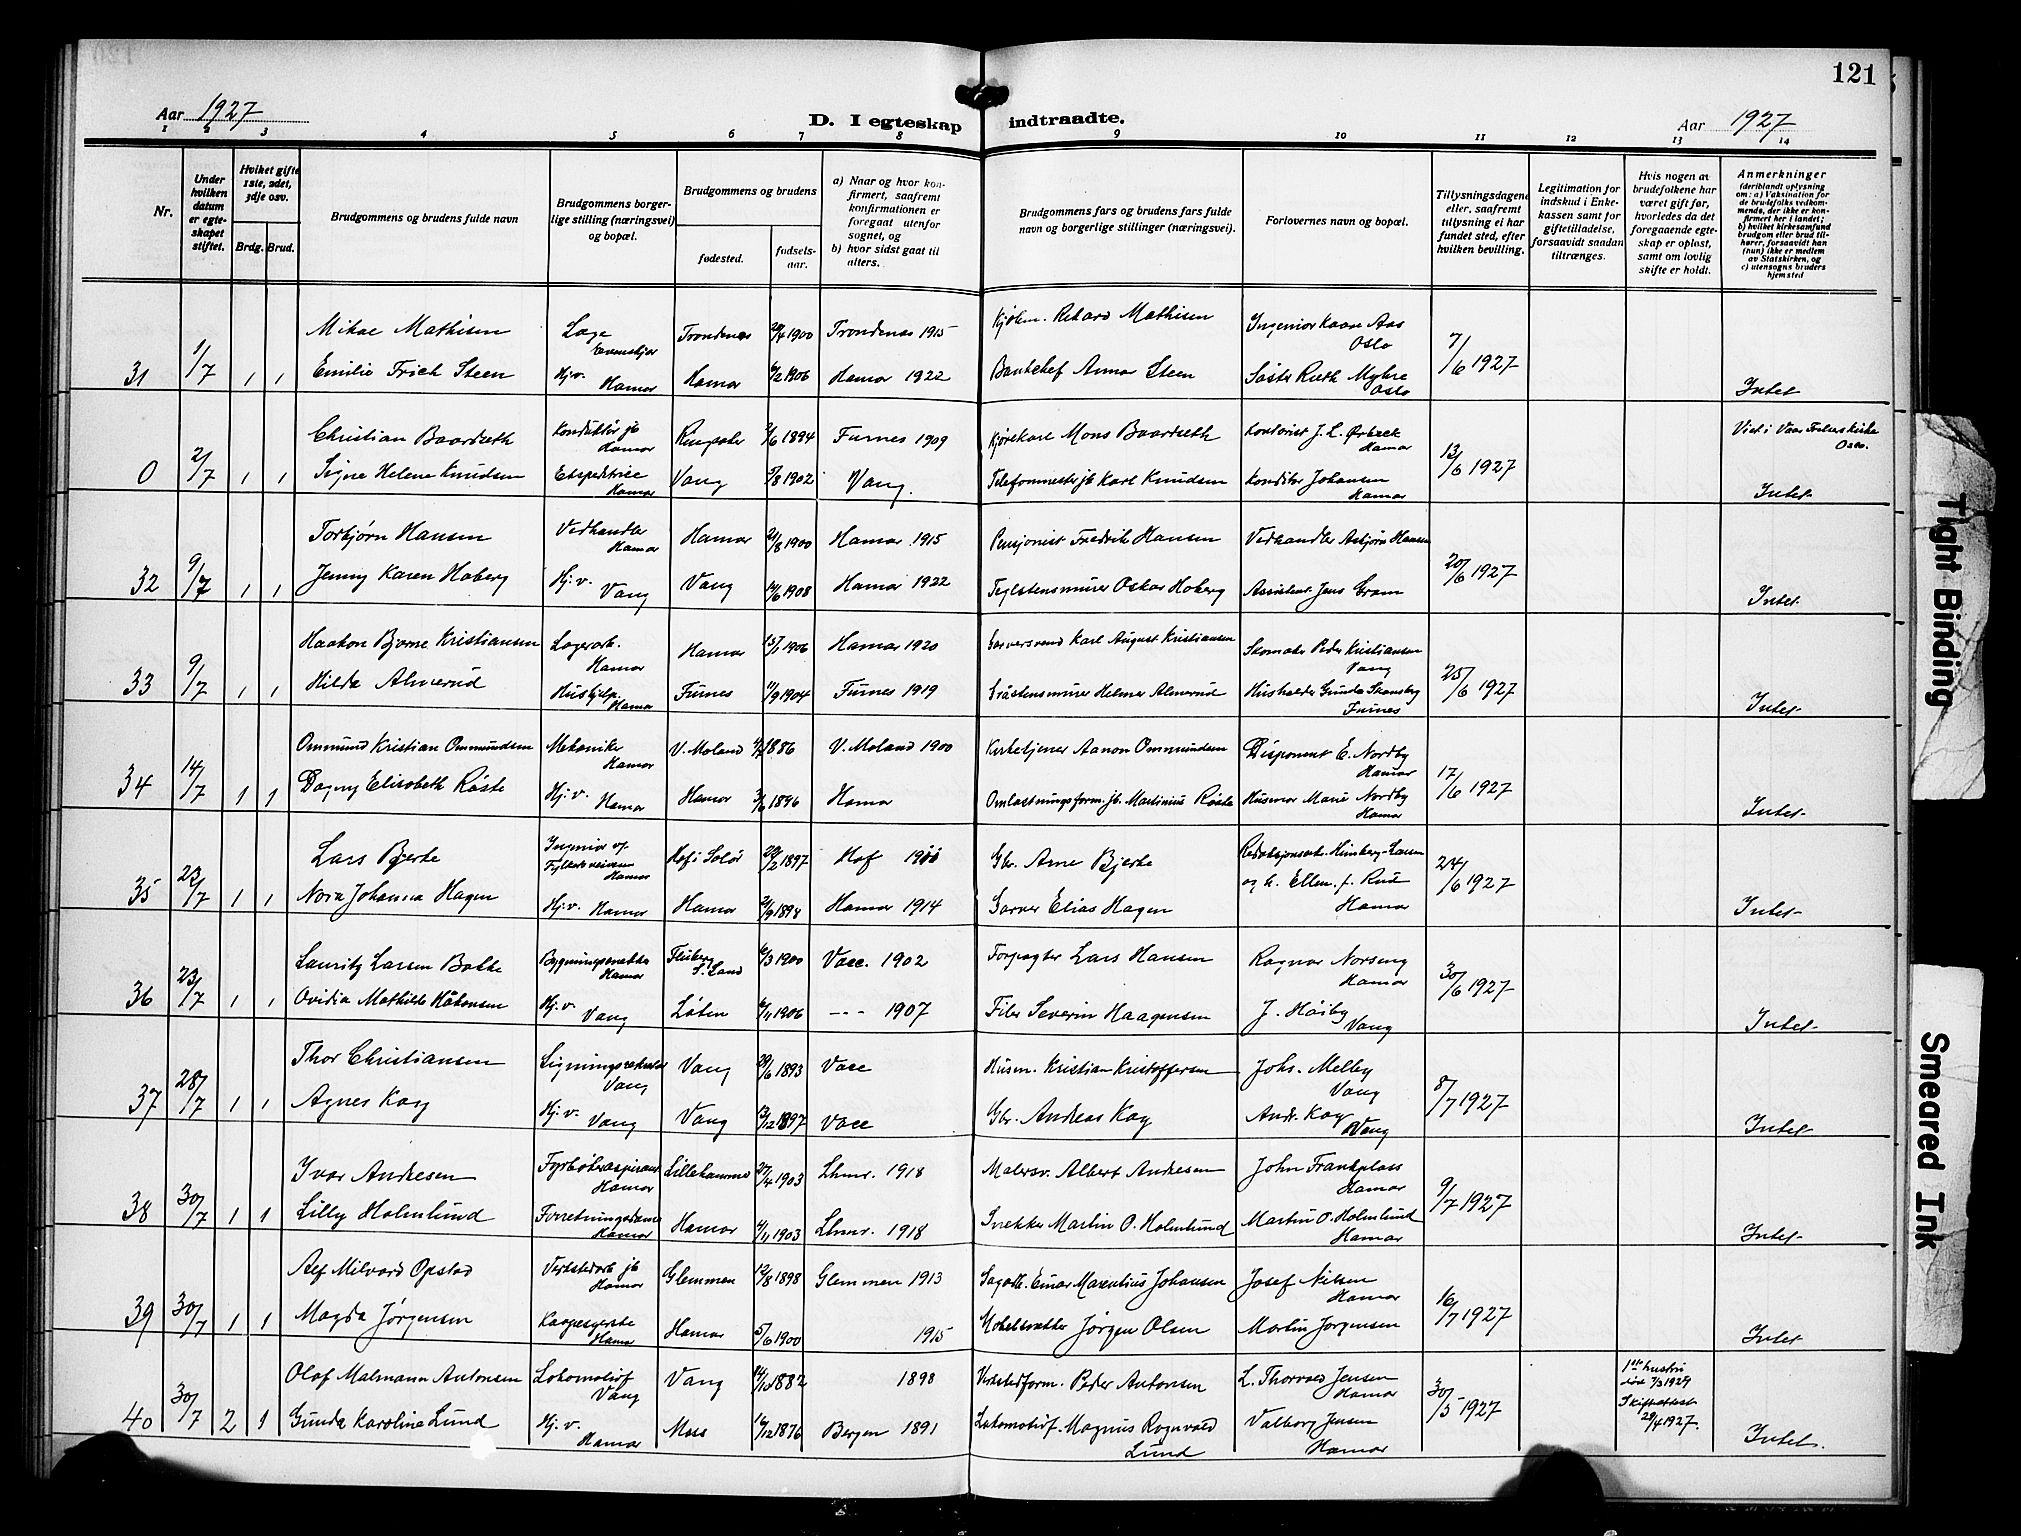 121
Aar 1927
D. I egteskap indtraadte.
Aar 1927
1 2 3 4 5 6 7 8 9 10 11 12 13 14
Nr.
Under hvilken datum er egteskapet stiftet.
Hvilket gifte 1ste, 2det, 3dje osv.
Brdg. Brud.
Brudgommens og brudens fulde navn
Brudgommens borgerlige stilling (næringsvei) og bopæl.
Brudgommens og brudens
fødested.
fødselsaar.
a) Naar og hvor konfirmert, saafremt konfirmationen er foregaat utenfor sognet, og
b) hvor sidst gaat til alters.
Brudgommens fars og brudens fars fulde navn og borgerlige stillinger (næringsvei).
Forlovernes navn og bopæl.
Tillysningsdagene eller, saafremt tillysning ei har fundet sted, efter hvilken bevilling.
Legitimation for indskud i Enkekassen samt for giftetilladelse, forsaavidt saadan tiltrænges.
Hvis nogen av brudefolkene har været gift før, hvorledes da det foregaaende egteskap er opløst, samt om lovlig skifte er holdt.
Anmerkninger
(deriblandt oplysning om: a) Vaksination for de brudefolks vedkommende, der ikke er konfirmert her i landet; b) hvilket kirkesamfund brudgom eller brud tilhører, forsaavidt han (hun) ikke er medlem av Statskirken, og c) utensogns bruders hjemsted
31 1/7 1 1 Mikal Mathisen Læge Trondenes 1900 Trondenes 1915 Rikard Mathisen Ingeniør Kaare Aas Oslo 7/6 1927
Emilie Frich Steen Hj.v. Hamar Hamar 1906 Hamar 1922 Steen Søster Ruth Myhre Oslo Intet
0 2/7 1 1 Christian Baardseth Konduktør jb Hamar 1894 Furnes 1909 Kjørekarl Mons Baardseth Kontorist J. L. Ørbæk Hamar 13/6 1927 Viet i Vaar Frelsers kirke Oslo.
Signe Helene Knudsen Ekspeditrice Hamar Vang 1902 Vang. Telefonmester jb Karl Knudsen Konditor Johansen Hamar Intet
32 9/7 1 1 Torbjørn Hansen Vedhandler Hamar Hamar 1900 Hamar 1915 Pensjonist Fredrik Hansen Vedhandler Asbjørn Hansen 20/6 1927
Jenny Karen Hoberg Hj.v. Vang Vang 14/6 1908 Hamar 1922 Teglstensmurer Oskar Hoberg Assistent Jens Gram Intet.
33 9/7 1 1 Haakon Bjarne Kristiansen Lagerarb. Hamar Hamar 1906 Hamar 1920 Garversvend Karl August Kristiansen Skomaker Peder Kristiansen Vang 25/6 1927
Hilda Almerud Hushjelp Hamar Furnes 1904 Furnes 1919 Gråstensmurer Helmer Almerud Husholder Gunda Skansberg Furnes Intet
34 14/7 1 1 Ommund Kristian Ommundsen Mekaniker Hamar V. Moland 1886 V. Moland 1900 Kirketjener Aanon Ommundsen Disponent E. Nordby Hamar 17/6 1927
Dagny Elisabeth Røste Hj.v. Hamar Hamar 1896 Hamar Omlastningsform. jb. Martinius Røste Husmor Marie Nordby Hamar Intet
35 23/7 1 1 Lars Bjerke Ingeniør Hamar Hof i Solør 1897 Hof Gbr. Arne Bjerke 24/6 1927
Nora Johanna Hagen Hj.v. Hamar Hamar Hamar 1914 Garver Elias Hagen og h. Ellen f. Rud Hamar Intet
36 23/7 1 1 Lauritz Larsen Bakke Bygningssnekker Hamar Fluberg S. Land 1900 Vacc. 1902 Forpagter Lars Hansen Ragnar Norseng Hamar 30/6 1927
Ovidia Mathilde Håkonsen Hj.v. Vang Løten 1906 --- 1907 Filer Severin Haagensen J. Høiby Vang Intet
37 28/7 1 1 Thor Christiansen Ligningssekretær Vang Vang 29/6 1893 Vacc Husm. Kristian Kristoffersen Johs. Melby Vang 8/7 1927
Agnes Kag Hj.v. Vang Vang 1897 Vacc Gbr. Andreas Kag Andr. Kag Vang Intet
38 30/7 1 1 Ivar Andresen Fyrbøteraspirant Hamar Lillehammer 27/4 1903 Lhmr. 1918 Malersv. Albert Andresen John Frankplass Hamar 9/7 1927
Lilly Holmlund Forretningsdame Hamar Hamar 1903 Lhmr. 1918 Snekker Martin O. Holmlund Martin O. Holmlund Hamar Intet
39 30/7 1 1 Alf Milvard Opstad Verkstedarb jb Hamar Glemmen 12/8 1898 Glemmen 1913 Sagarb. Einar Marentius Johansen Josef Nilsen Hamar 16/7 1927
Magda Jørgensen Kaapesyerske Hamar Hamar 5/6 1900 1915 Møbelsnekker Jørgen Olsen Martin Jørgensen Intet
40 30/7 2 1 Olaf Malmann Antonsen Lokomotivf Vang Vang 1882 1898 Verkstedform. Peder Antonsen L. Thorvald Jensen Hamar 30/5 1927 1ste hustru død 7/3 1924 Skifteattest 29/4 1927.
Gunda Karoline Lund Hj.v. Hamar Moss 16/12 1876 Bergen 1891 Lokomotivf. Magnus Rognvald Lund Valborg Jensen Hamar Intet.
Tight Binding
Smeared Ink